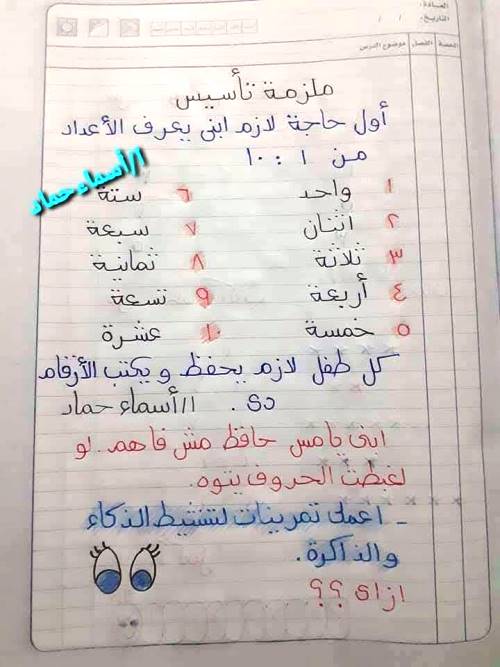 المادة:
التاريخ: / /
الحصة الفصل موضوع الدرس
ملزمة تأسيس
أول حاجة لازم ابنى يعرف الأعداد
من ١ : ١٠
أ/أسماء حماد
١ واحد ٦ ستة
٢ اثنان ٧ سبعة
٣ ثلاثة ٨ ثمانية
٤ أربعة ٩ تسعة
٥ خمسة ١٠ عشرة
كل طفل لازم يحفظ و يكتب الأرقام
دى. أ/أسماء حماد
ابنى يا مس حافظ مش فاهم. لو
لغبطت الحروف يتوه.
- اعملى تمرينات لتنشيط الذكاء
والذاكرة.
ازاى ؟؟